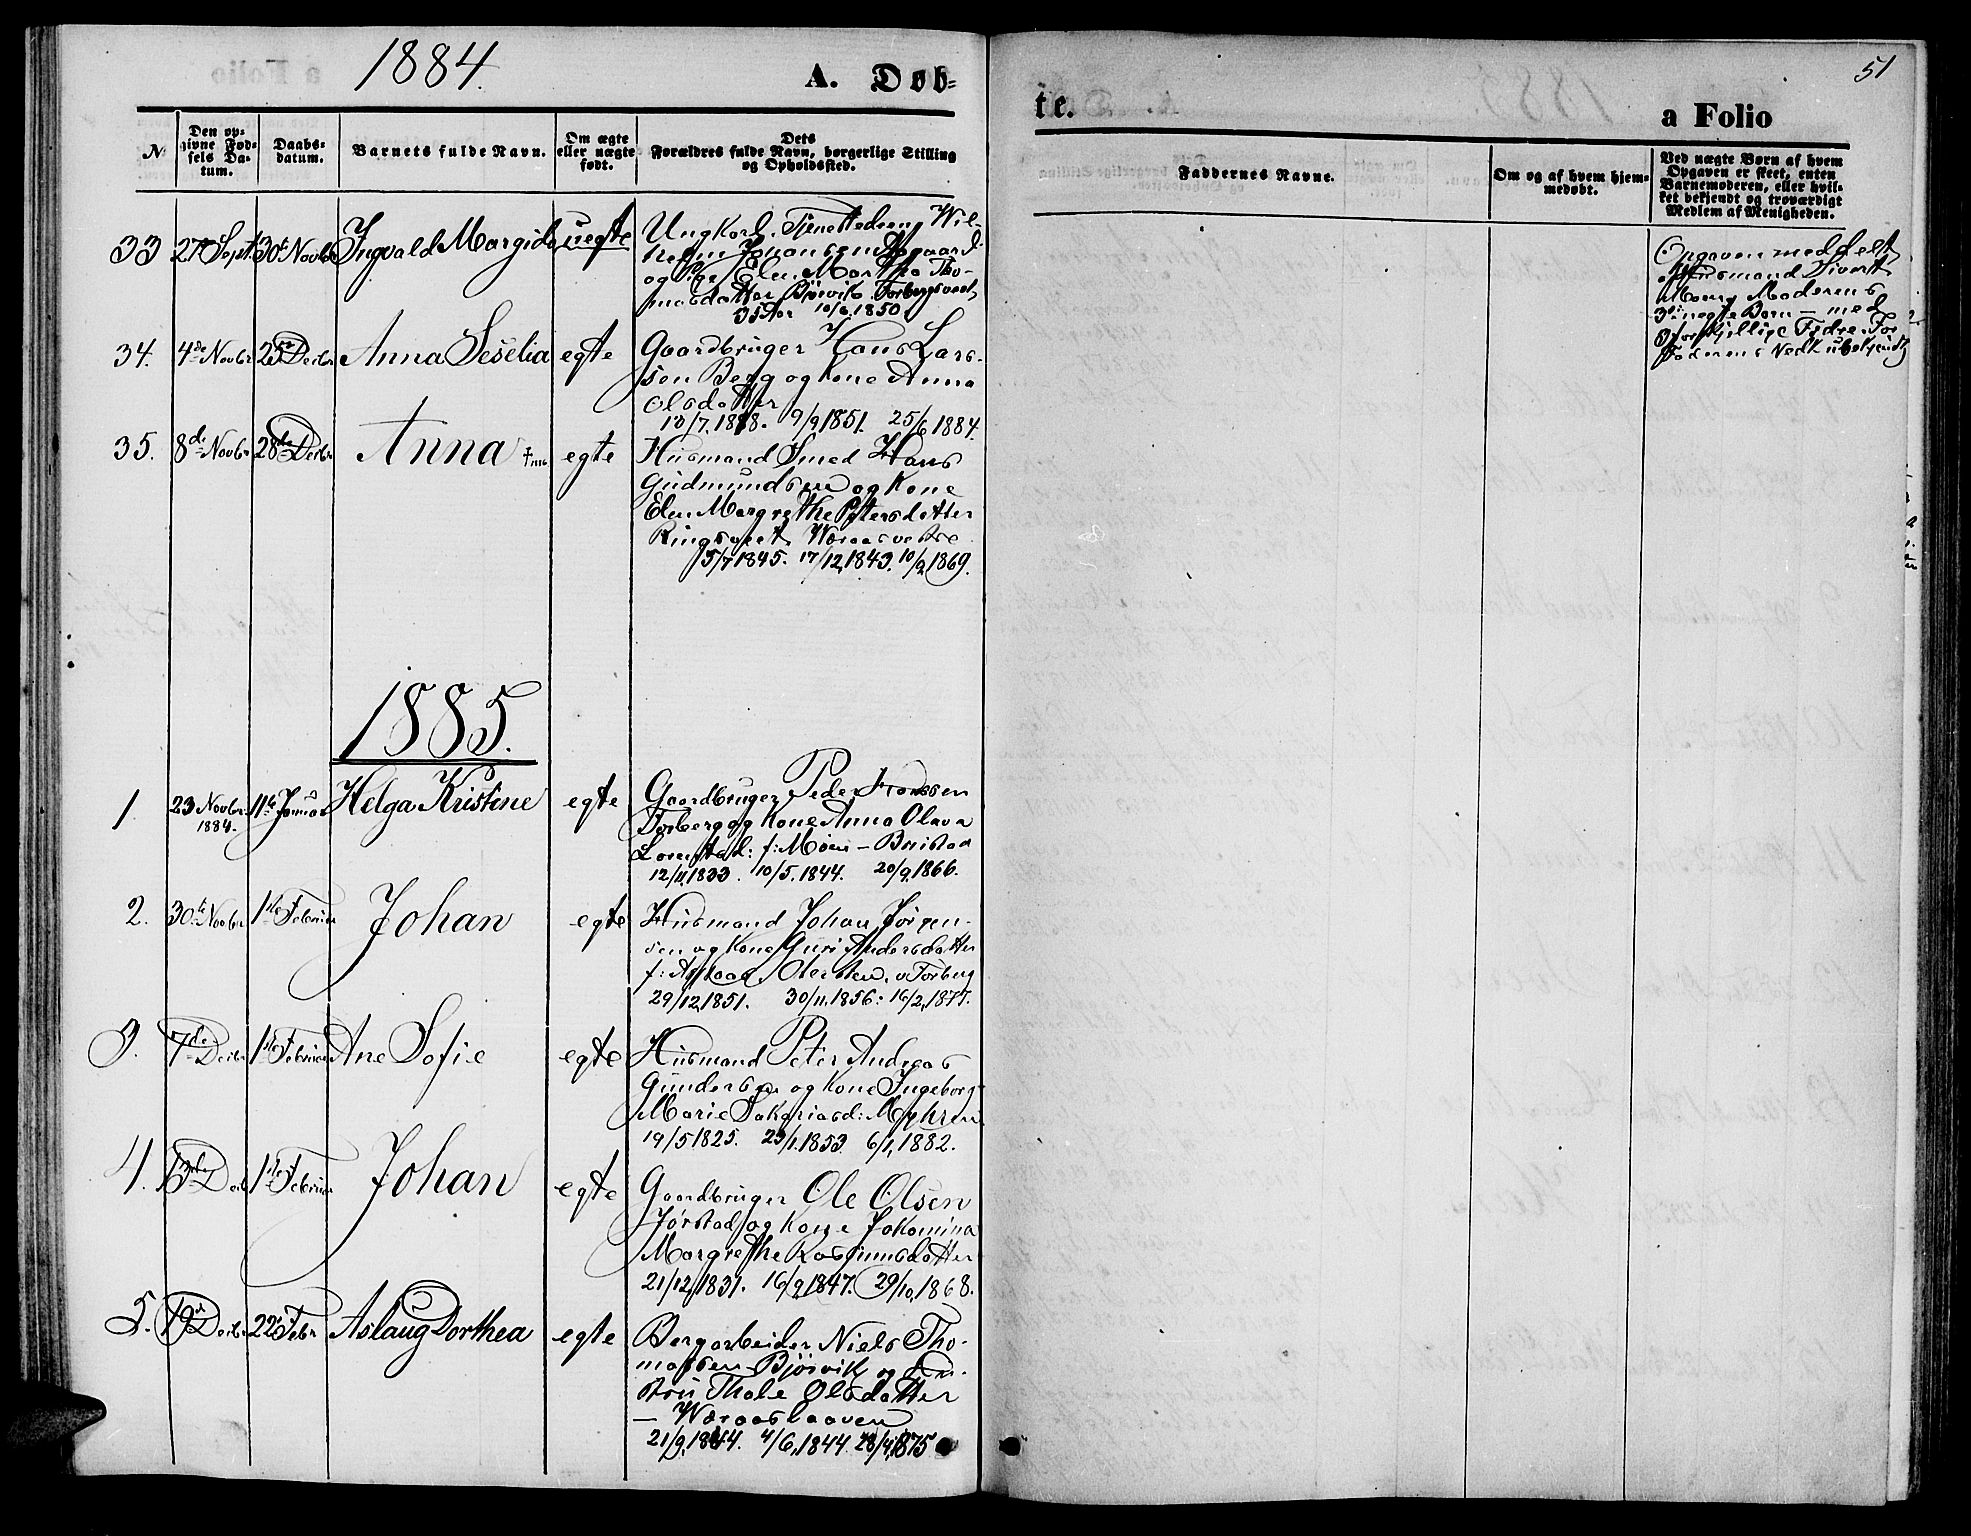 1884.
A. Døb=
te.
a Folio
51
N.
Den op=
givne Fød=
sels Da=
tum.
Daabs=
datum.
Barnets fulde Navn.
Om ægte
eller uægte
født.
Dets
Forældres fulde Navn, borgerlige Stilling
og Opholdssted.
Faddernes Navne.
Om og af hvem hjem=
medøbt.
Ved uægte Børn af hvem
Opgaven er skeet, enten
Barnemoderen, eller hvil=
ket bekjendt og troværdigt
Medlem af Menigheden.
33 27 Sept. 30 Novbr Ingvald uegte
Ungkarl Wil-
helm Johansen
og Pige Elen Martha Tho-
masdatter Bjørvik
35 Aar 10/6 1850
Opgaven meddelt
af Husmand Sivert
Moderens
3die uegte Barn – med
3 forskjellige Fædre.
34. 4de Novbr 25 Decbr Anna Seselia egte
Gaardbruger Hans Lars-
sen Berg og Kone Anna
Olsdatter
9/9 1851. 25/6 1884.
35. 8de Novbr 28de Decbr Anna egte
Husmand Smed Hans
Gudmundsen og Kone
Elen Margrethe Petersdatter
15/7 1845. 17/12 1843. 10/2 1869.
1885.
1. 23 Novbr 1884. 11te Januar Helga Kristine egte
Gaardbruger Peder Hanssen
Forberg og Kone Anna Olava
12/11 1833. 10/5. 1844. 20/9. 1866.
2. 30te Novbr 1ste Februar Johan egte
Husmand Johan Jørgen-
sen og Kone Guri Andersdatter
v. Forberg
29/12 1851. 30/11. 1856: 16/2, 1877.
3. 7de Decbr 1ste Februar Ane Sofie egte
Husmand Peter Andreas
Gundersen og Kone Ingeborg
Marie Sakariasd:
19/5 1825. 23/1. 1853. 6/1, 1882.
4. 13de Decbr 1ste Februar Johan egte
Gaardbruger Ole Olsen
Jørstad og Kone Jakomina
Margrethe Rasmusdatter
21/12, 1831. 16/9, 1847. 29/10, 1868.
5. 19de Decbr 22 Febr Aslaug Dorthea egte
Bergarbeider Niels Tho-
massen Bjørvik og Hu-
stru Thale Olsdatter
–
21/9, 1844. 4/6, 1844. 28/4, 1875